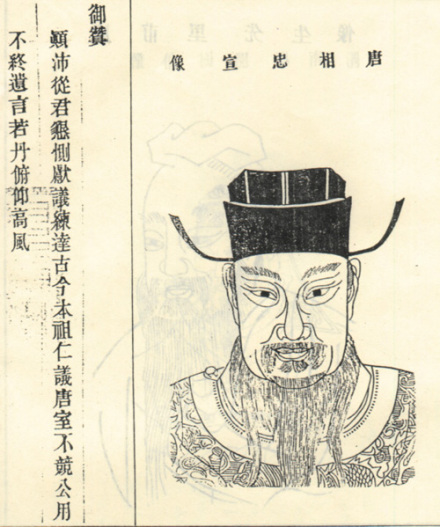 唐相忠宣像
御贊
顛沛從君懇惻獻議練達古今本祖仁議唐室不競公用
不終遺言若丹俯仰高風